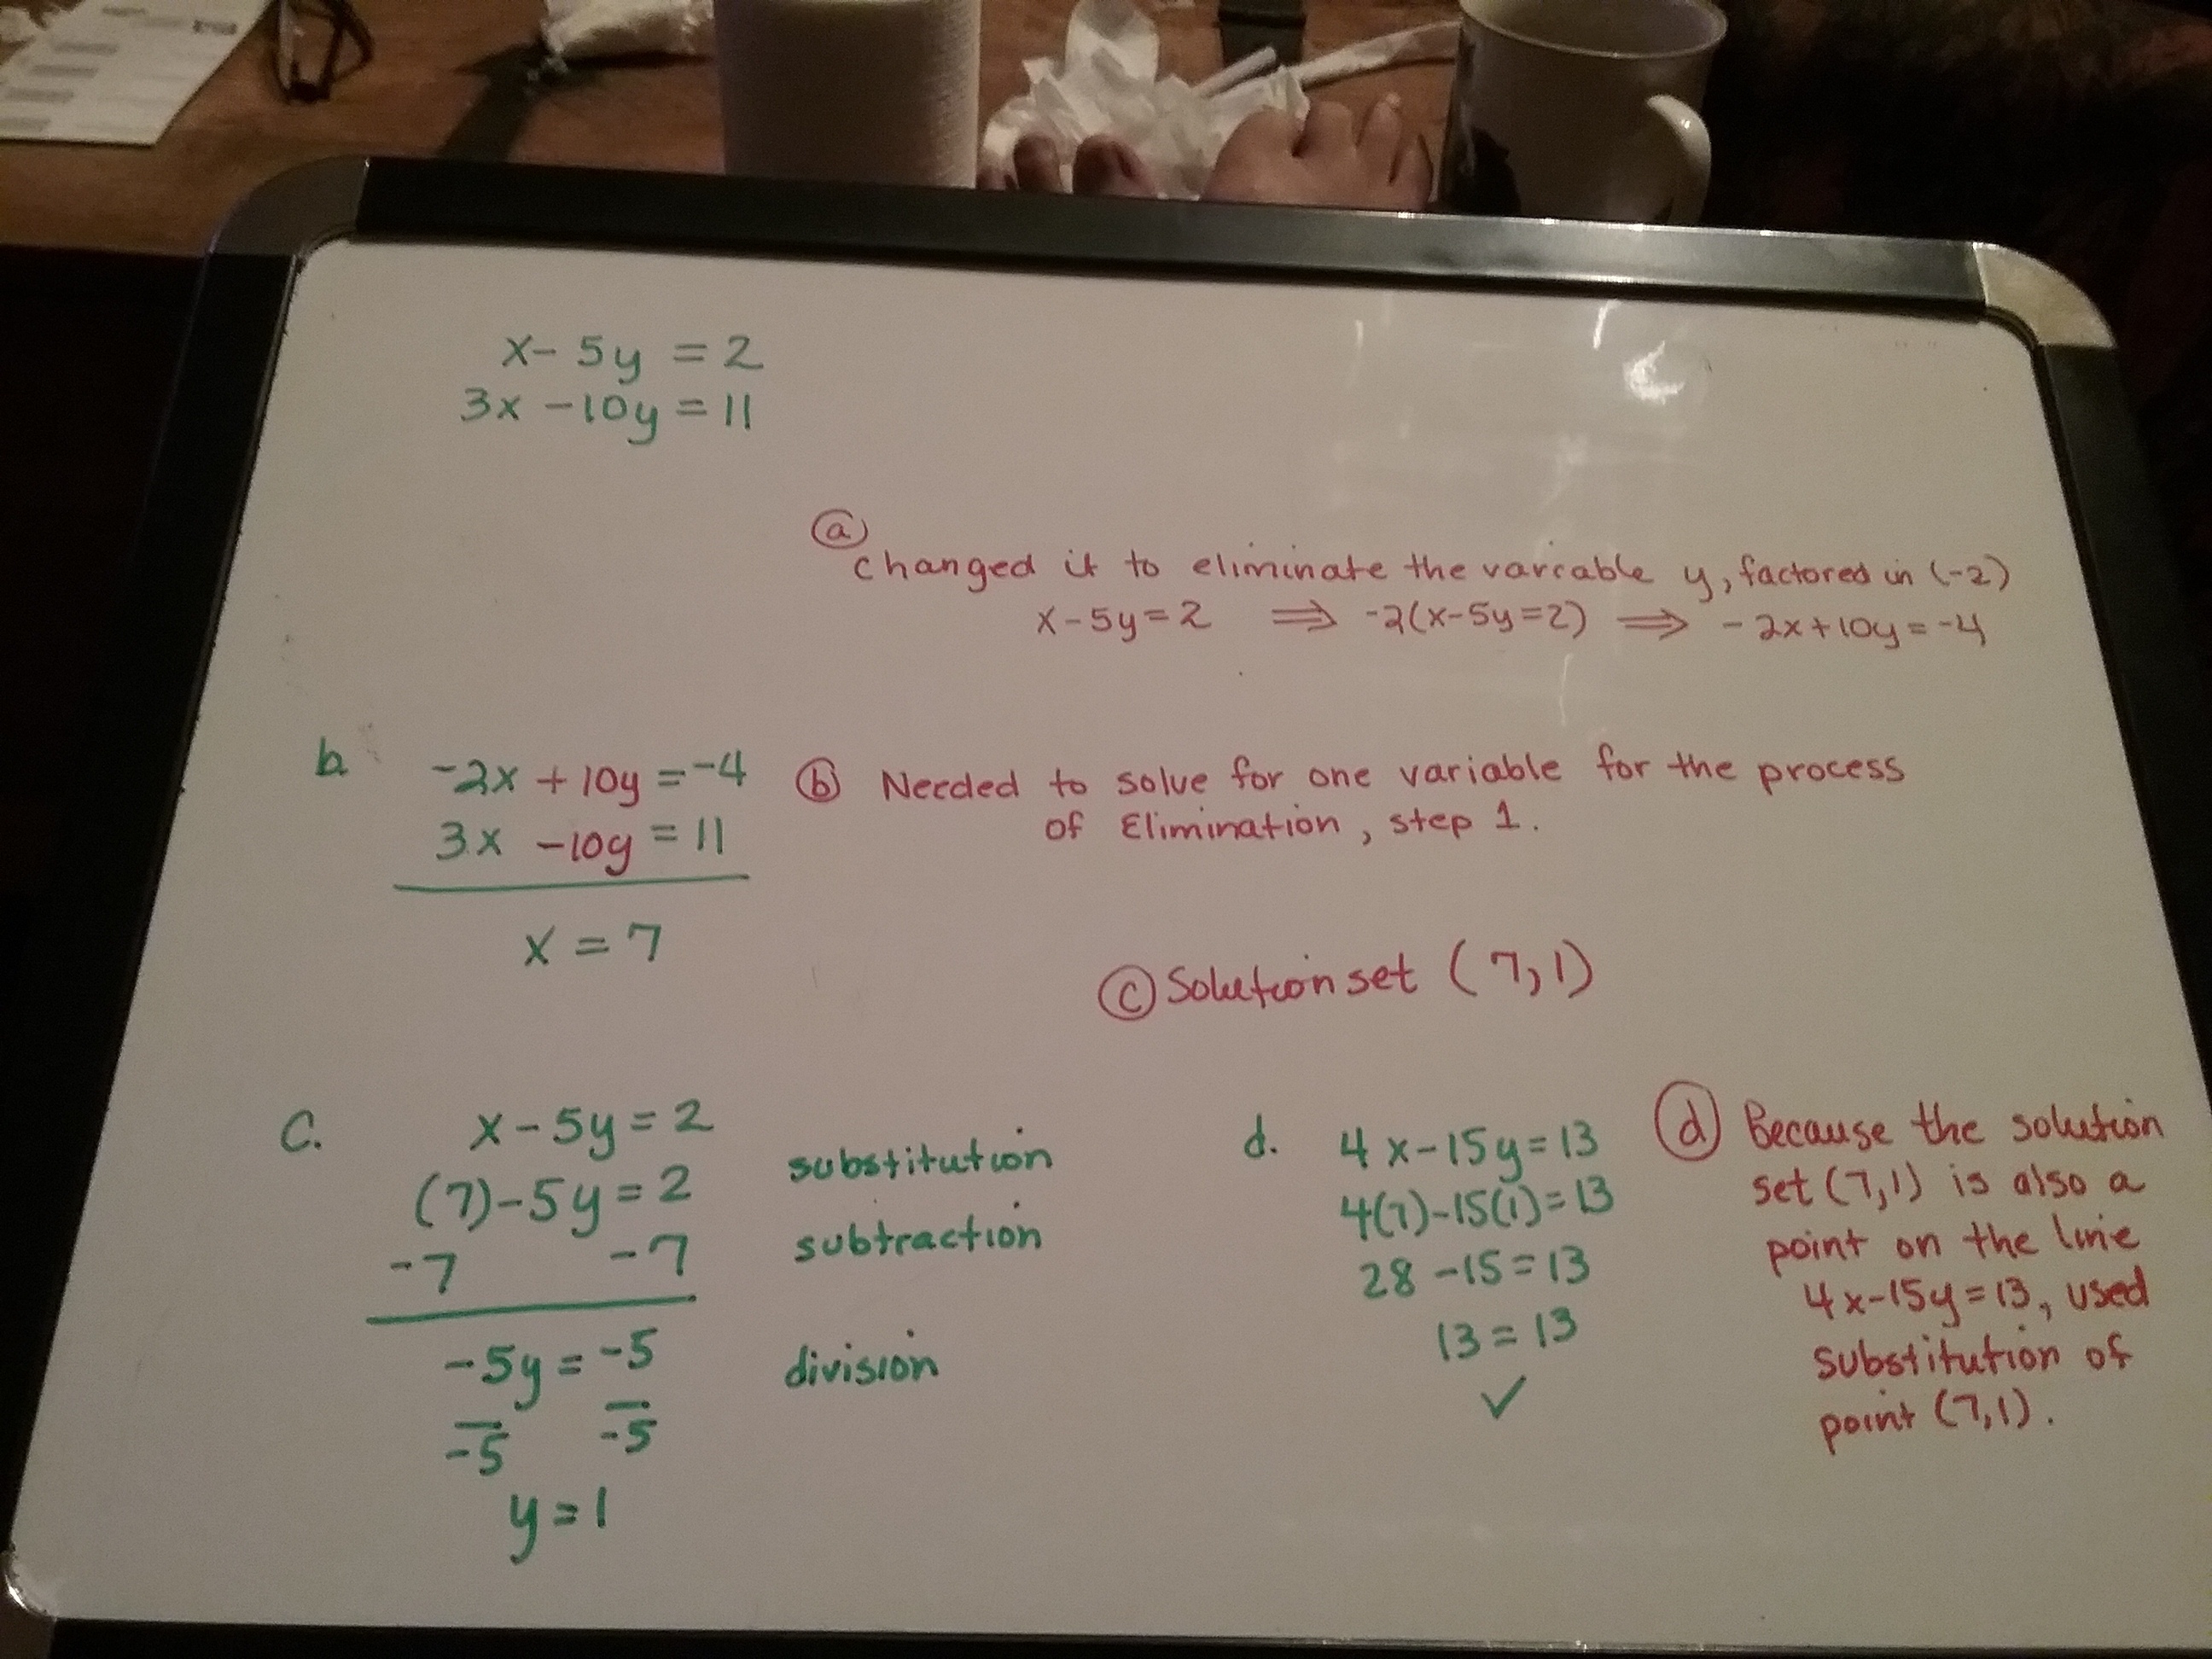 x - 5y = 2
3x - 10y = 11
(a)
changed it to eliminate the variable y, factored in (-2)
x - 5y = 2 ⟹ -2(x - 5y = 2) ⟹ -2x + 10y = -4
b. -2x + 10y = -4
3x - 10y = 11
x = 7
(b) Needed to solve for one variable for the process
of Elimination, step 1.
(c) Solution set (7,1)
c. x - 5y = 2
(7) - 5y = 2 substitution
-7 -7 subtraction
-5y = -5 division
-5 -5
y = 1
d. 4x - 15y = 13
4(7) - 15(1) = 13
28 - 15 = 13
13 = 13
✓
(d) Because the solution
set (7,1) is also a
point on the line
4x - 15y = 13, used
substitution of
point (7,1).